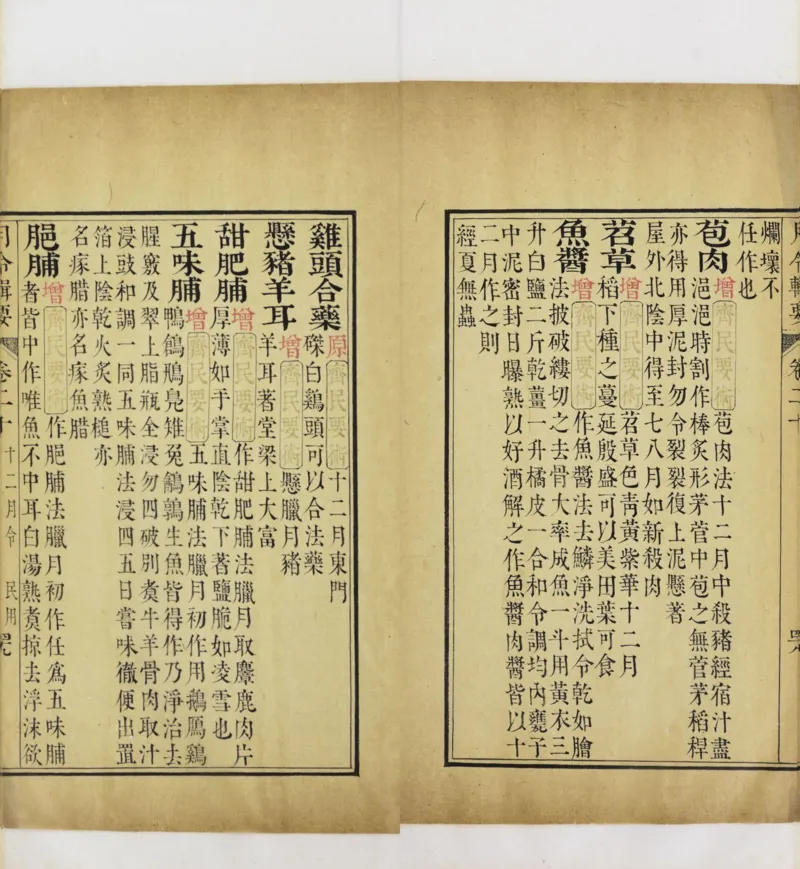 爛壞不
任作也
苞肉 增 齊民要術 苞肉法十二月中殺豬經宿汁盡
浥浥時割作棒炙形茅菅中苞之無菅茅稻稈
亦得用厚泥封勿令裂裂復上泥懸著
屋外北陰中得至七八月如新殺肉
苕草 增 齊民要術 苕草色靑黃紫華十二月
稻下種之蔓延殷盛可以美田葉可食
魚醬 增 齊民要術 作魚醬法去鱗淨洗拭令乾如膾
法披破縷切之去骨大率成魚一斗用黃衣三
升白鹽二斤乾薑一升橘皮一合和令調均內甕子
中泥密封日曝熟以好酒解之作魚醬肉醬皆以十
二月作之則
經夏無蟲
雞頭合藥 原 齊民要術 十二月東門
磔白鷄頭可以合法藥
懸豬羊耳 增 齊民要術 懸臘月豬
羊耳著堂梁上大富
甜肥脯 增 齊民要術 作甜肥脯法臘月取麞鹿肉片
厚薄如手掌直陰乾下著鹽脆如凌雪也
五味脯 增 齊民要術 五味脯法臘月初作用鵝鴈鷄
鴨鶬鳧雉兔鶉生魚皆得作乃淨治去
腥竅及翠上脂瓶全浸勿四破別煑牛羊骨肉取汁
浸豉和調一同五味脯法浸四五日嘗味徹便出置
箔上陰乾火炙熟槌亦
名瘃腊亦名瘃魚腊
脃脯 增 齊民要術 作脃脯法臘月初作任爲五味脯
者皆中作唯魚不中耳白湯熟煑掠去浮沫欲
月令輯要 卷二十 十二月令 民用